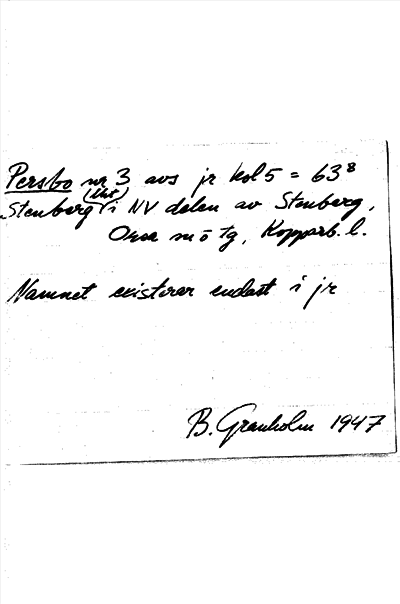 Persbo nr 3 avs jr kol 5 = 63⁸
Stenberg (Lht) i NV delen av Stenberg,
Orsa sn o tg, Kopparb. l.
Namnet existerar endast i jr
B. Granholm 1947